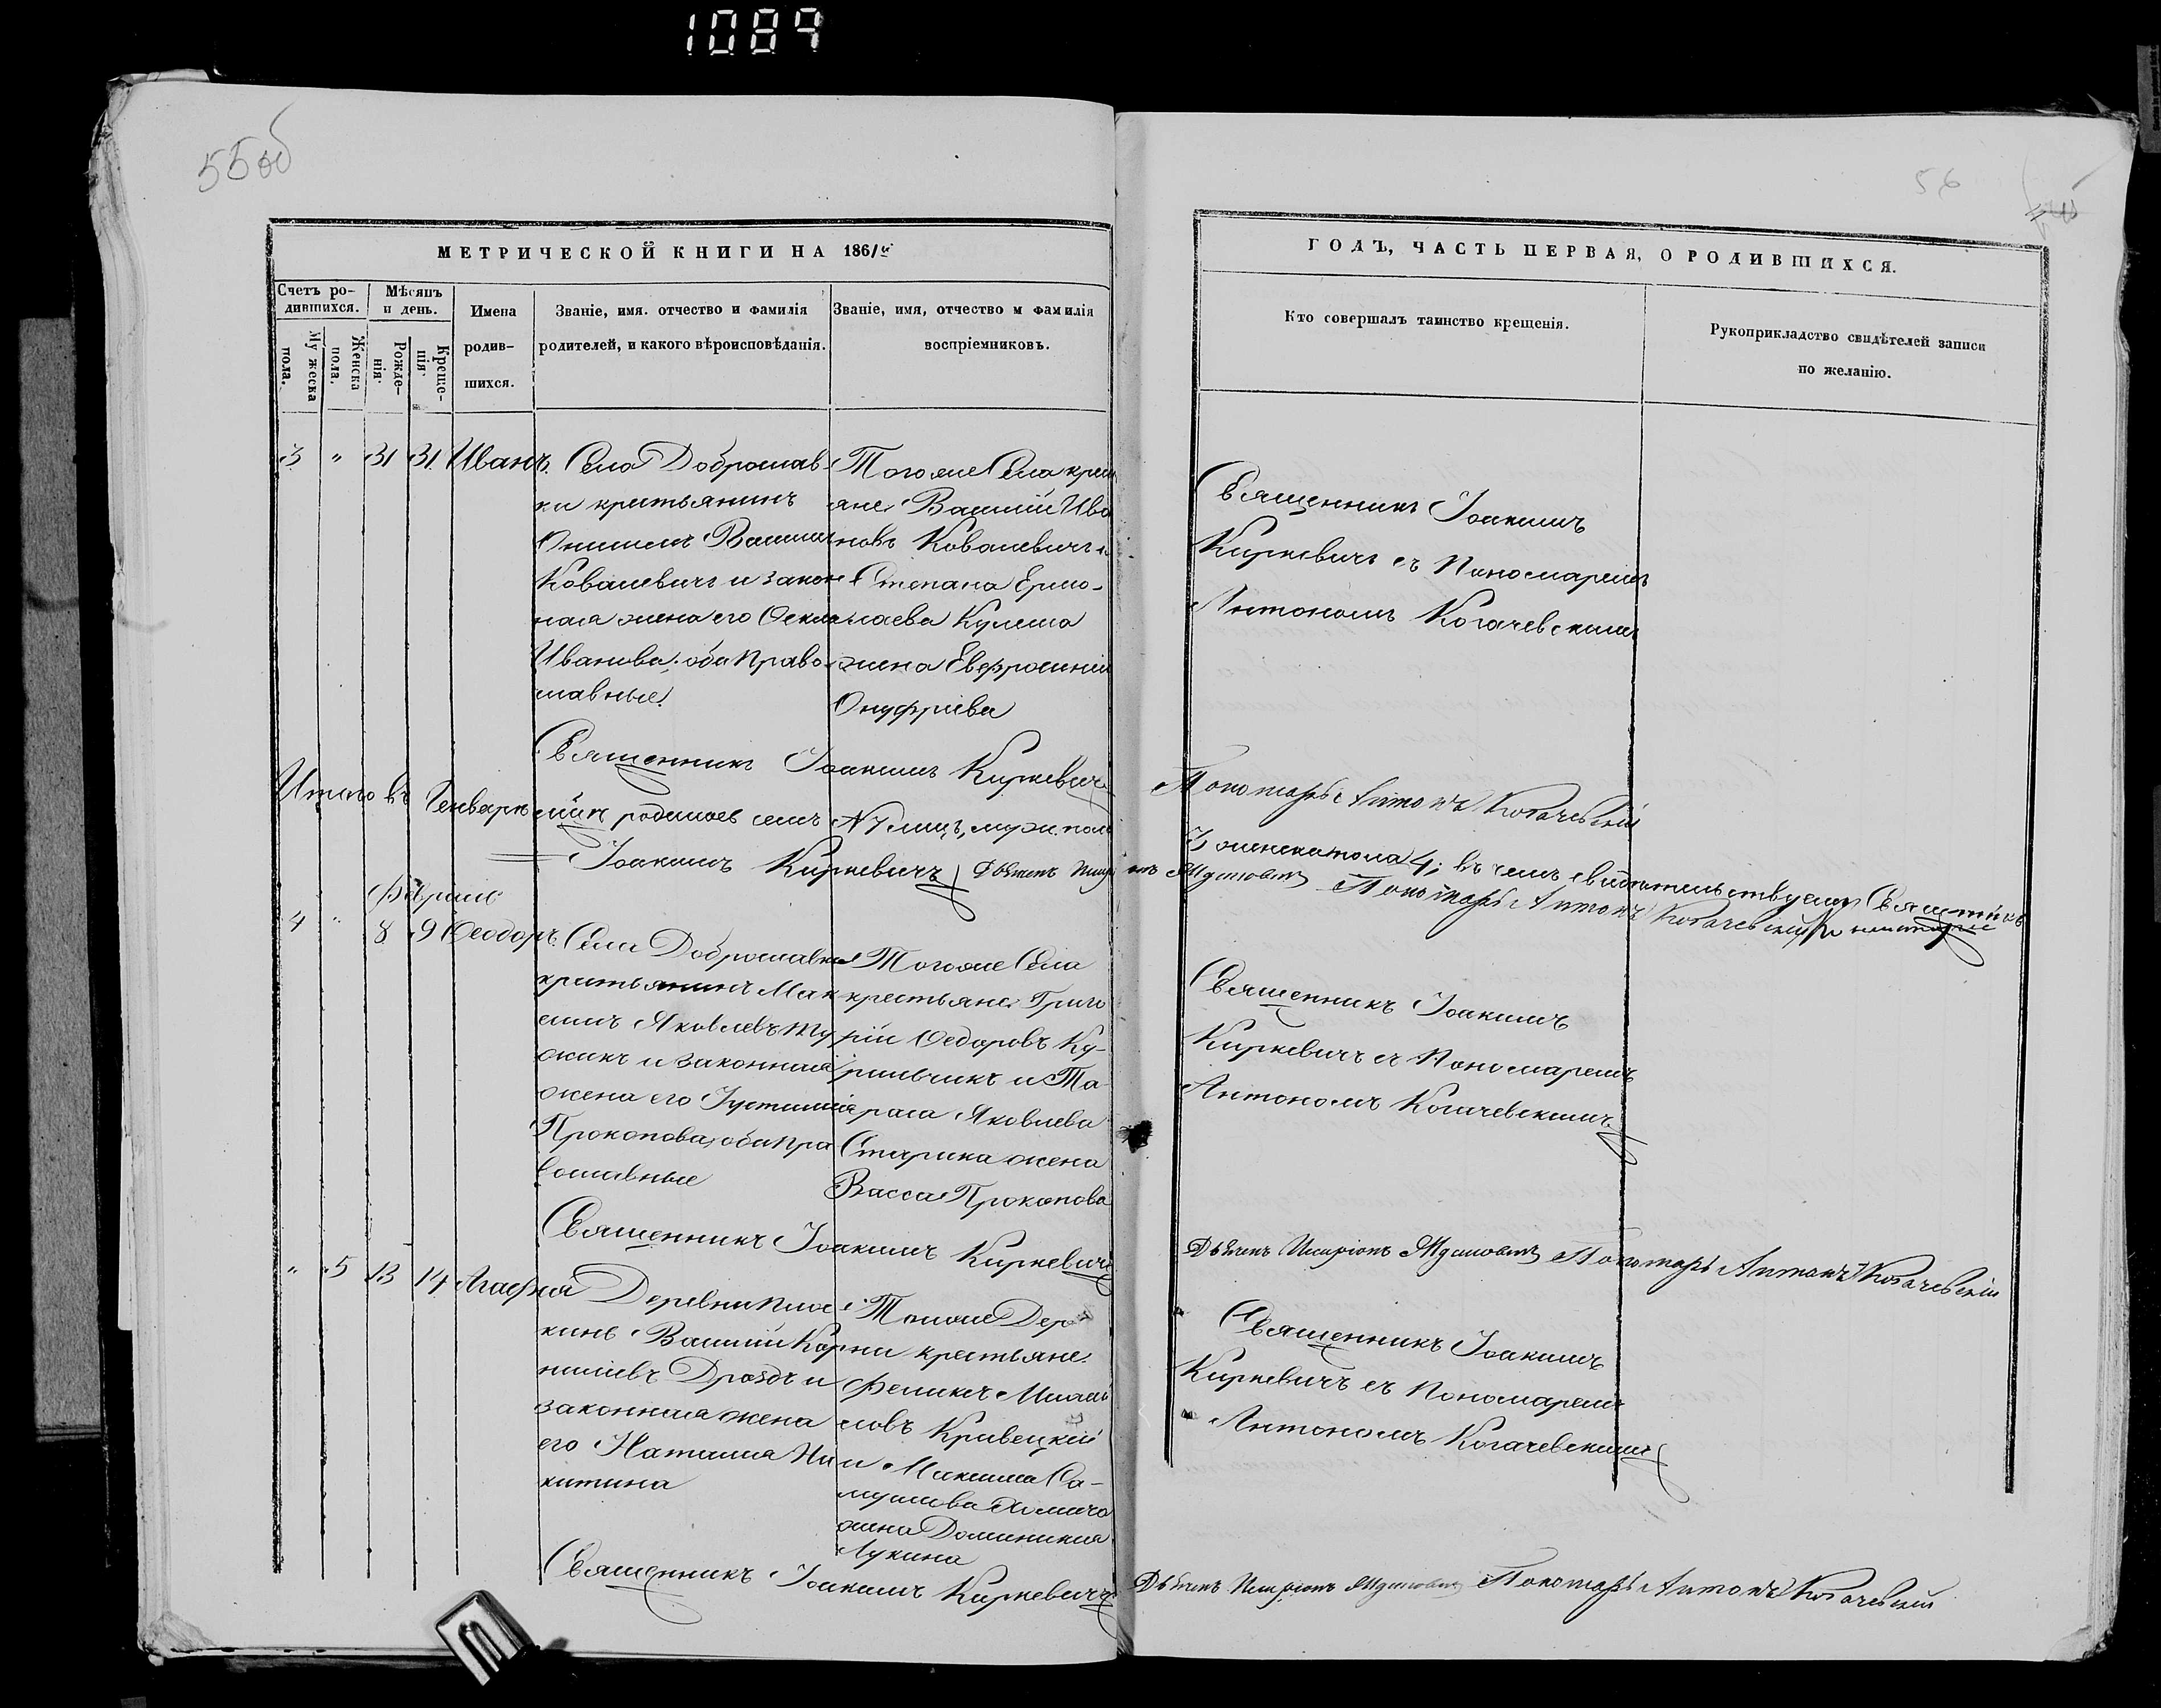 1089
55об
56
МЕТРИЧЕСКОЙ КНИГИ НА 1861й
ГОДЪ, ЧАСТЬ ПЕРВАЯ, О РОДИВШИХСЯ.
Счетъ родившихся.
Мужеска пола.
Женска пола.
Мѣсяцъ и день.
Рожденія.
Крещенія.
Имена родившихся.
Званіе, имя. отчество и фамилія
родителей, и какого вѣроисповѣданія.
Званіе, имя, отчество и фамилія
воспріемниковъ.
Кто совершалъ таинство крещенія.
Рукоприкладство свидѣтелей записи
по желанію.
3 " 31 31 Иванъ
Села Доброслав-
ки крестьянинъ
Онисимъ Василіевъ
Ковалевичъ и закон
ная жена его Фекла
Иванова; оба Право
славные.
Тогоже Села крестья
яне: Василій Ива
новъ Ковалевичъ и
Степана Ермо-
лаева Кулеша
жена Евфросинія
Онуфріева
Священникъ Іоакимъ
Киркевичъ съ Пономаремъ
Антономъ Когачевскимъ
Священникъ Іоакимъ Киркевичъ
Пономарь Антонъ Когачевскій
Итого въ Генварѣ мцѣ родилось семь № 7 лицъ, муж. пола
3 женска пола 4; въ чемъ свидѣтельствуемъ Священникъ
Іоакимъ Киркевичъ Дьячекъ
Пономарь Антонъ Когачевскій
Февраль
4 " 8 9 Феодоръ
Села Доброславки
крестьянинъ Мак
симъ Яковлевъ Ту
жикъ и законная
жена его Іустинія
Прокопова, оба Пра
вославные
Тогоже Села
крестьяне: Григо
рій Федоровъ Ку-
рильчикъ и Та-
раса Яковлева
Старика жена
Васса Прокопова
Священникъ Іоакимъ
Киркевичъ съ Пономаремъ
Антономъ Когачевскимъ
Священникъ Іоакимъ Киркевичъ
Дьячекъ Иларіонъ Пономарь Антонъ Когачевскій
" 5 13 14 Агафія
Деревни Плос
кинь Василій Кор
ниліевъ Дроздъ и
законная жена
его Наталія Ни
китина
Тоюже Дерев
ни крестьяне:
Феликсъ
Кривецкій
и Максима Са-
муилова Хомича
жена Доминикія
Лукина
Священникъ Іоакимъ
Киркевичъ съ Пономаремъ
Антономъ Когачевскимъ
Священникъ Іоакимъ Киркевичъ
Дьячекъ Иларіонъ Пономарь Антонъ Когачевскій